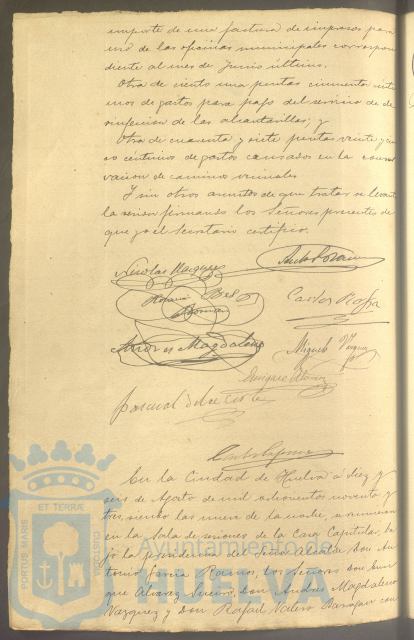 importe de una factura de impresos para
uso de las oficinas municipales correspon
diente al mes de Junio último.
Otra de ciento una pesetas cincuenta cénti
mos de gastos para pago del servicio de de
sinfeccion de las alcantarillas; y
Otra de cuarenta y siete pesetas veinte y cin
co céntimos de gastos causados en la conser
vacion de caminos vecinales.
Y sin otros asuntos de que tratar se levantó
la sesion firmando los Señores presentes de
que yo el Secretario certifico.
Nicolas Vazquez
Carlos
Andres Magdaleno
Miguel Vazquez
Enrique
Pascual
En la Ciudad de Huelva á diez y
seis de Agosto de mil ochocientos noventa y
tres, siendo las nueve de la noche, se reunieron
en la Sala de sesiones de la Casa Capitular, ba
jo la presidencia del Señor Alcalde Don An
tonio García Ramos, los Señores Don Enri
que Alvarez Don Andrés Magdaleno
Vazquez y Don Rafael con
PORTUS MARIS ET TERRÆ CUSTODIA
Ayuntamiento de
HUELVA